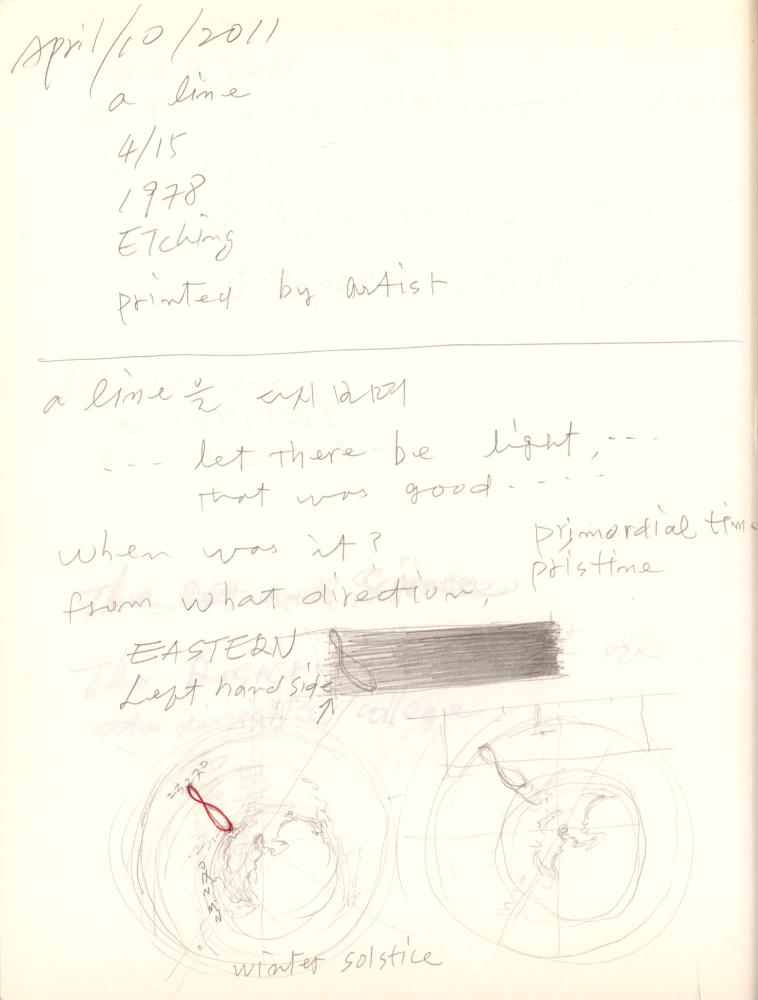 April/10/2011
a line
4/15
1978
ETching
printed by artist
a line을 다시 보며
--- let there be light, ---
that was good - - - -
when was it?
primordial time
pristine
from what direction,
EASTERN
Left hand side
23.270
23.270
winter solstice